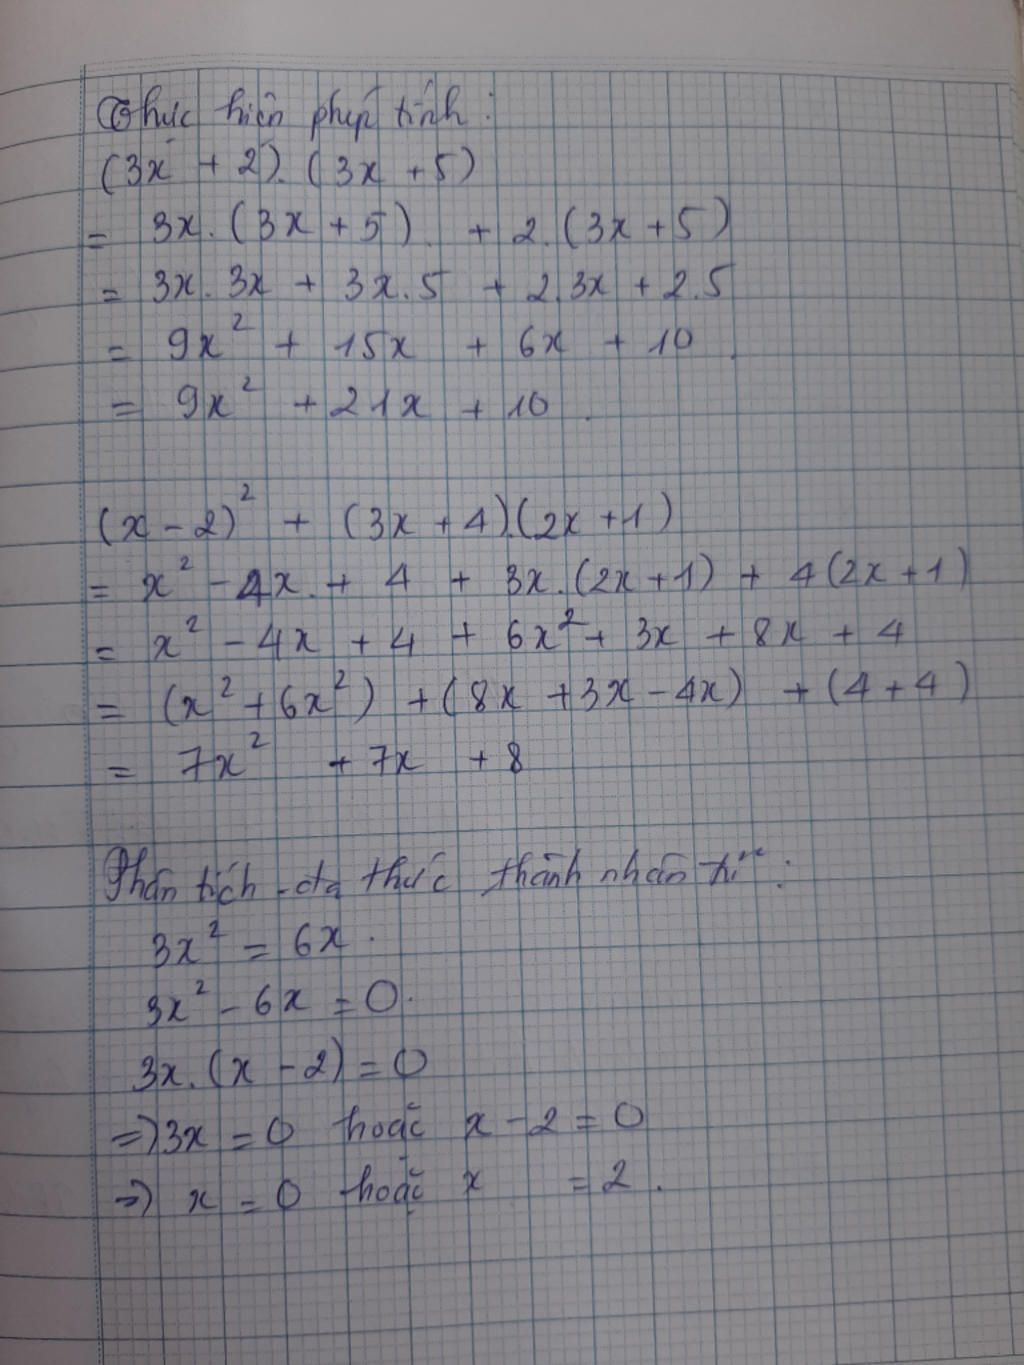 Thực hiện phép tính:
(3x + 2).(3x + 5)
= 3x.(3x + 5) + 2.(3x + 5)
= 3x.3x + 3x.5 + 2.3x + 2.5
= 9x² + 15x + 6x + 10.
= 9x² + 21x + 10.
(x - 2)² + (3x + 4).(2x + 1)
= x² - 4x + 4 + 3x.(2x + 1) + 4(2x + 1)
= x² - 4x + 4 + 6x² + 3x + 8x + 4
= (x² + 6x²) + (8x + 3x - 4x) + (4 + 4)
= 7x² + 7x + 8
Phân tích đa thức thành nhân tử:
3x² = 6x.
3x² - 6x = 0.
3x.(x - 2) = 0
=> 3x = 0 hoặc x - 2 = 0
=> x = 0 hoặc x = 2.